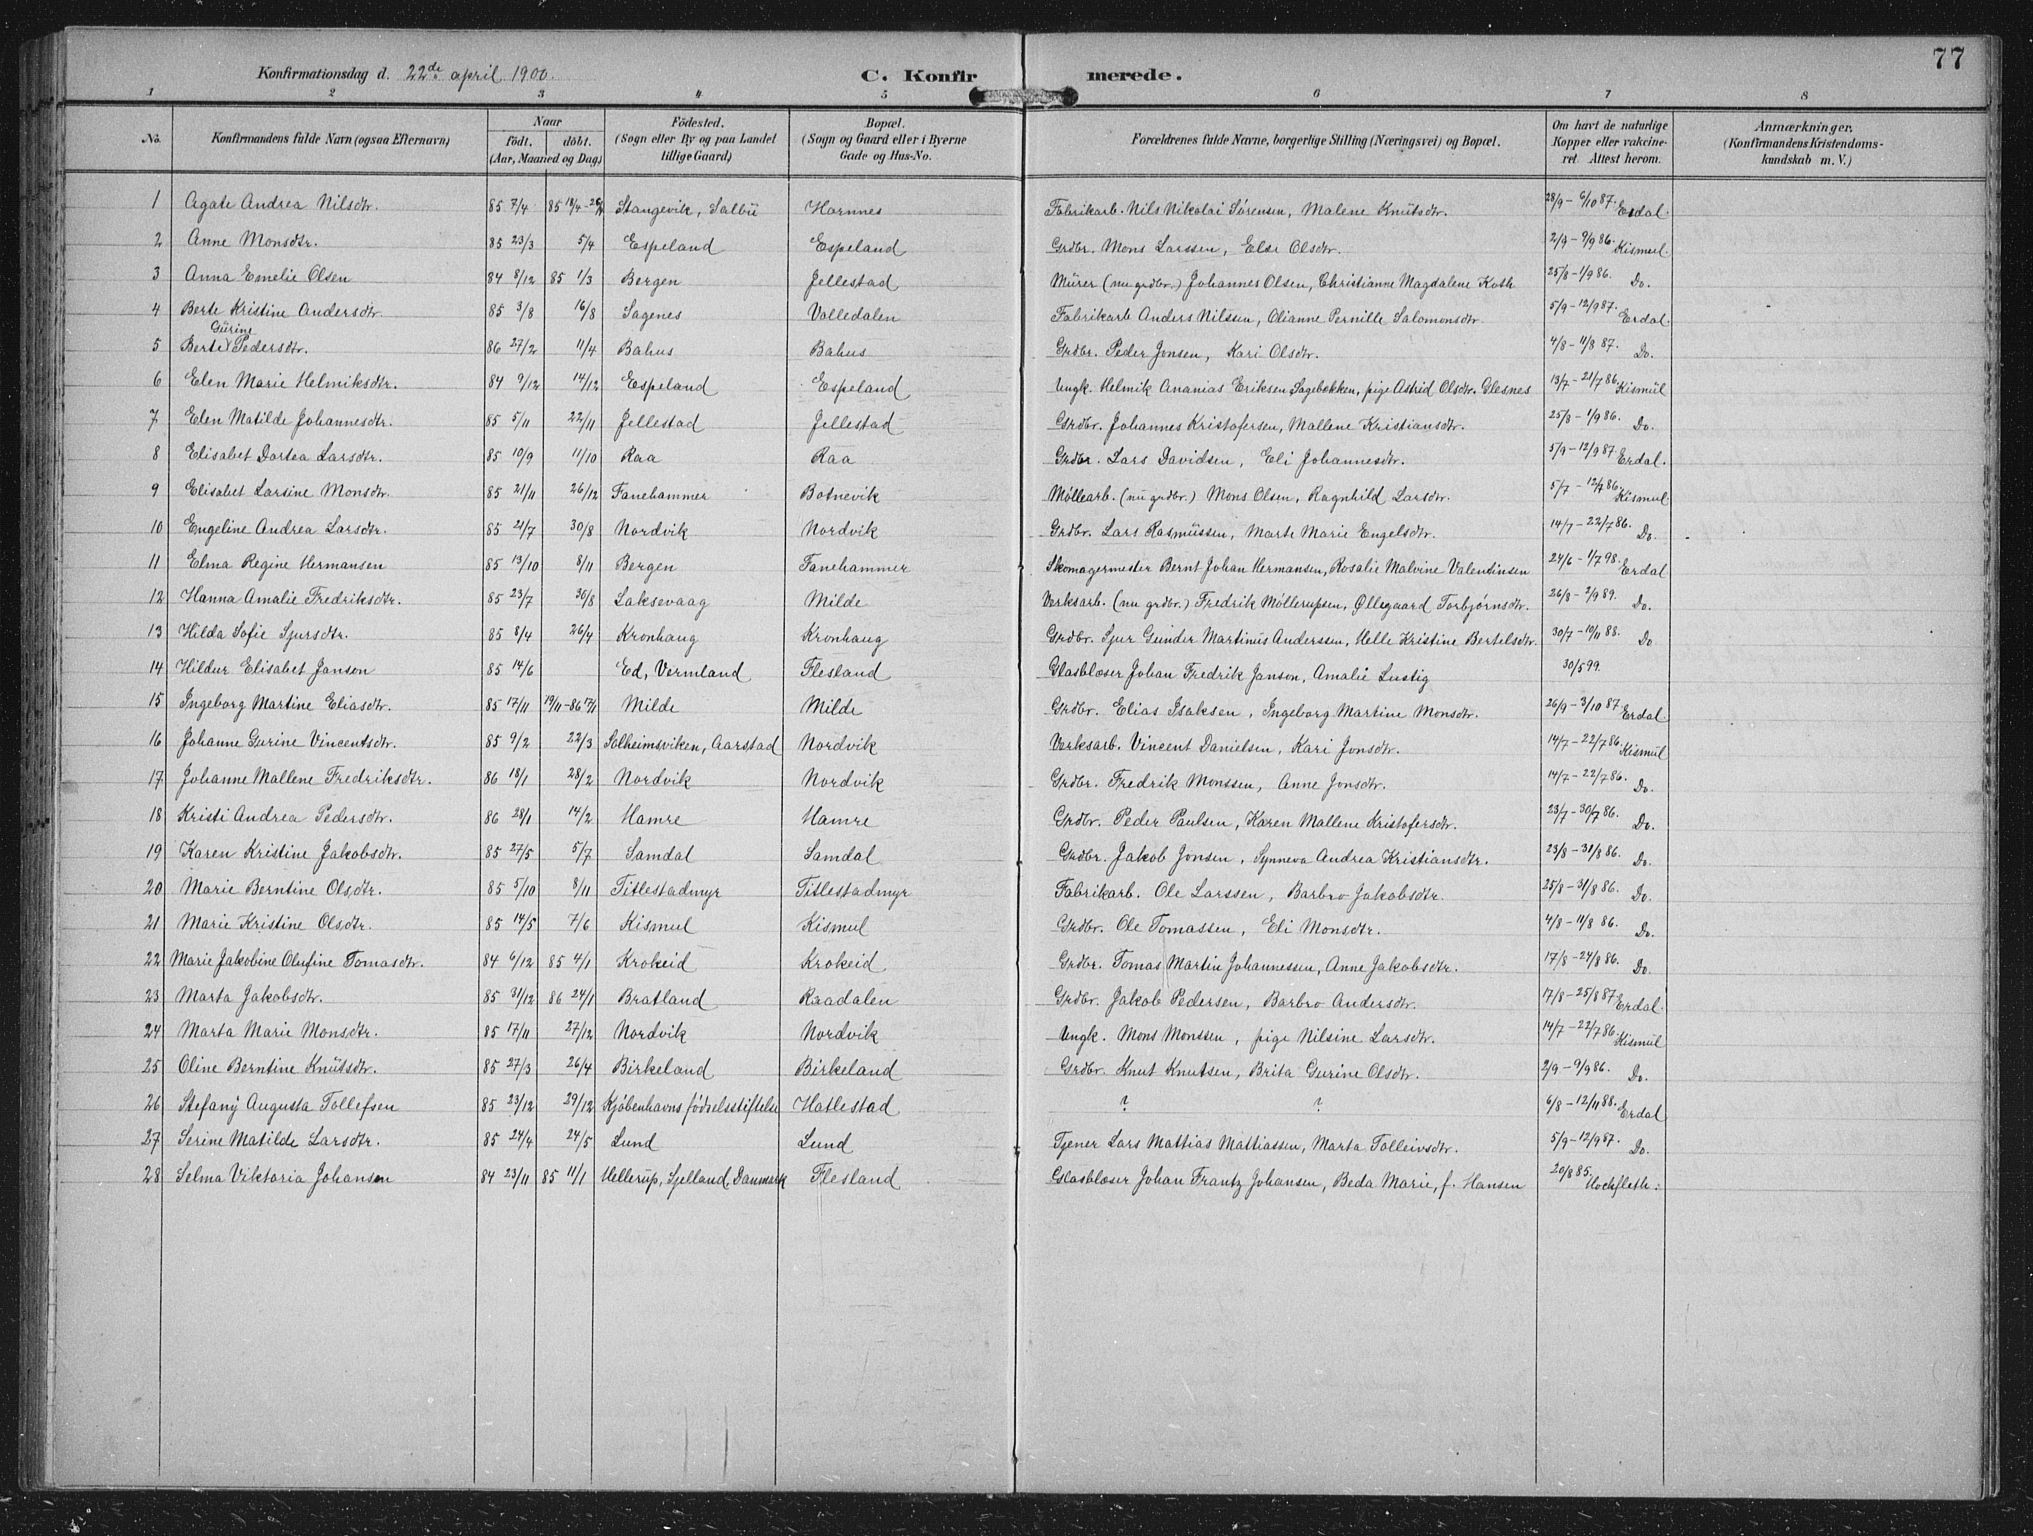 77
Konfirmationsdag d. 22de april 1900. C. Konfir merede.
1 2 3 4 5 6 7 8
No. Konfirmandens fulde Navn (ogsaa Efternavn) Naar födt. döbt. (Aar, Maaned og Dag) Födested. (Sogn eller By og paa Landet tillige Gaard) Bopæl. (Sogn og Gaard eller i Byerne Gade og Hus-No. Forældrenes fulde Navne, borgerlige Stilling (Næringsvei) og Bopæl. Om havt de naturlige Kopper eller vakcineret. Attest herom. Anmærkninger. (Konfirmandens Kristendomskundskab m. V.)
1 Agate Andrea Nilsdtr. 85 7/4 85 18/4 - Stangevik, Salbü Hornnes Fabrikarb. Nils Nikolai Sørensen, Malene Knütsdtr. 28/9 - 6/10 87. Erdal.
2 Anne Monsdtr. 85 23/3 5/4 Espeland Espeland Grdbr. Mons Larssen, Else Olsdtr. 2/9 - 9/9 86. Kismul.
3 Anna Emelie Olsen 84 8/12 85 1/3 Bergen Jellestad Mürer (nu grdbr.) Johannes Olsen, Christianne Magdalene Koth 25/8 - 1/9 86. Do.
4 Berte Kristine Andersdtr. 85 3/8 16/8 Sagenes Valledalen Fabrikarb Anders Nilssen, Olianne Pernille Salomonsdtr. 5/9 - 12/9 87. Erdal.
5 Berte Gürine Pedersdtr. 86 27/2 11/4 Bahus Bahus Grdbr. Peder Jonsen, Kari Olsdtr. 4/8 - 11/8 87. Do.
6 Elen Marie Helmiksdtr. 84 9/12 14/12 Espeland Espeland Ungk. Helmik Ananias Eriksen Sagebakken, pige Astrid Olsdtr. Glesnes 13/7 - 21/7 86. Kismül
7 Elen Matilde Johannesdtr. 85 5/11 22/11 Jellestad Jellestad Grdbr. Johannes Kristofersen, Mallene Kristiansdtr. 25/8 - 1/9 86. Do.
8 Elisabet Dortea Larsdtr. 85 10/9 11/10 Raa Raa Grdbr. Lars Davidsen, Eli Johannesdtr. 5/9 - 12/9 87 Erdal.
9 Elisabet Larsine Monsdtr. 85 21/11 26/12 Fanehammer Botnevik Møllearb. (nu grdbr.) Mons Olsen, Ragnhild Larsdtr. 5/7 - 12/7 86. Kismul.
10 Engeline Andrea Larsdtr. 85 21/7 30/8 Nordvik Nordvik Grdbr. Lars Rasmüssen, Marte Marie Engelsdtr. 14/7 - 22/7 86. Do.
11 Elma Regine Hermansen 85 13/10 8/11 Bergen Fanehammer Skomagermester Bernt Johan Hermansen, Rosalie Malvine Valentinsen 24/6 - 1/7 98. Erdal
12 Hanna Amalie Fredriksdtr. 85 23/7 30/8 Laksevaag Milde Verksarb. (nu grdbr.) Fredrik Møllerupsen, Øllegaard Torbjørnsdtr. 26/8 - 2/9 89. Do.
13 Hilda Sofie Sjursdtr. 85 8/4 26/4 Kronhaug Kronhaug Grdbr. Sjur Gunder Martinüs Anderssen, Helle Kristine Bertelsdtr. 30/7 - 10/11 88. Do
14 Hildur Elisabet Janson 85 14/6 Ed, Vermland Flesland Glasblæser Johan Fredrik Janson, Amalie Lustig 30/5 99.
15 Ingeborg Martine Eliasdtr. 85 17/11 19/11 - 86 17/1 Milde Milde Grdbr. Elias Isaksen, Ingeborg Martine Monsdtr. 26/9 - 3/10 87. Erdal.
16 Johanne Gurine Vincentsdtr. 85 9/2 22/3 Solheimsviken, Aarstad Nordvik Verksarb. Vincent Danielsen, Kari Jonsdtr. 14/7 - 22/7 86. Kismül
17 Johanne Mallene Fredriksdtr. 86 18/1 28/2 Nordvik Nordvik Grdbr. Fredrik Monssen, Anne Jonsdtr. 14/7 - 22/7 86. Do.
18 Kristi Andrea Pedersdtr. 86 28/1 14/2 Hamre Hamre Grdbr. Peder Paulsen, Karen Mallene Kristofersdtr. 23/7 - 30/7 86. Do.
19 Karen Kristine Jakobsdtr. 85 27/5 5/7 Samdal Samdal Grdbr. Jakob Jonsen, Synneva Andrea Kristiansdtr. 23/8 - 31/8 86. Do.
20 Marie Berntine Olsdtr. 85 5/10 8/11 Titlestadmyr Titlestadmyr Fabrikarb. Ole Larssen, Barbro Jakobsdtr. 25/8 - 31/8 86. Do.
21 Marie Kristine Olsdtr. 85 14/5 7/6 Kismul Kismul Grdbr. Ole Tomassen, Eli Monsdtr. 4/8 - 11/8 86. Do.
22 Marie Jakobine Olufine Tomasdtr. 84 6/12 85 4/1 Krokeid Krokeid Grdbr. Tomas Martin Johannessen, Anne Jakobsdtr. 17/8 - 24/8 86. Do.
23 Marta Jakobsdtr. 85 31/12 86 24/1 Bratland Raadalen Grdbr. Jakob Pedersen, Barbro Andersdtr. 17/8 - 25/8 87 Erdal.
24 Marta Marie Monsdtr. 85 17/11 27/12 Nordvik Nordvik Ungk. Mons Monssen, pige Nilsine Larsdtr. 14/7 - 22/7 86. Kismül
25 Oline Berntine Knütsdtr. 85 27/3 26/4 Birkeland Birkeland Grdbr. Knut Knutsen, Brita Gurine Olsdtr. 2/9 - 9/9 86. Do.
26 Stefany Augusta Tollefsen 85 23/12 29/12 Kjöbenhavns födselsstiftelse Hatlestad ? ? 6/8 - 12/11 88. Erdal
27 Serine Matilde Larsdtr. 85 24/4 24/5 Lund Lund Tjener Lars Mattias Mattiassen, Marta Tolleivsdtr. 5/9 - 12/9 87. Do.
28 Selma Viktoria Johansen 84 23/11 85 11/1 Hellerup, Sjelland, Danmark Flesland Glasblæser Johan Frantz Johansen, Beda Marie, f. Hansen 20/8 85. Hochfleth.